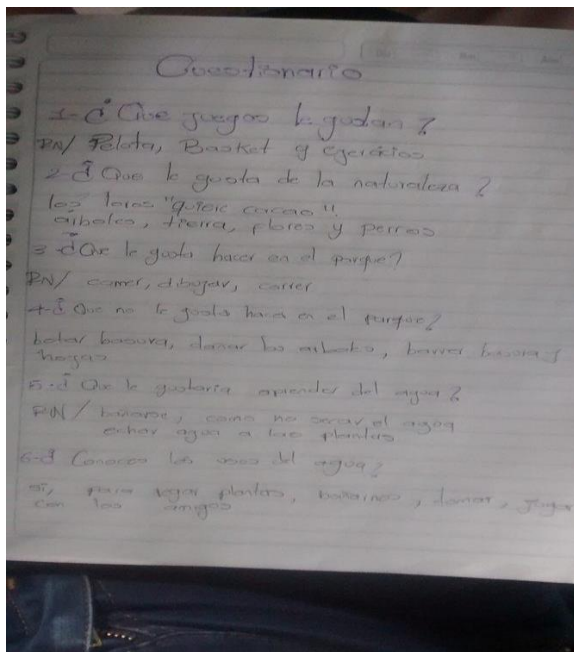 Cuestionario
1-¿Que juegos le gustan?
RN/ Pelota, Basket y egercicios
2-¿Que le gusta de la naturaleza?
los loros "quieic cacao".
arboles, tierra, flores y perros
3-¿Que le gusta hacer en el parque?
RN/ comer, dibujar, correr
4-¿Que no le gusta hacer en el parque?
botar basura, dañar los arboles, barrer basura y
hogas
5-¿Que le gustaria aprender del agua?
RN/ bañarse, como no el agua
echar agua a las plantas
6-¿Conoces los usos del agua?
si, para regar plantas, bañarnos, tomar, jugar
con los amigos